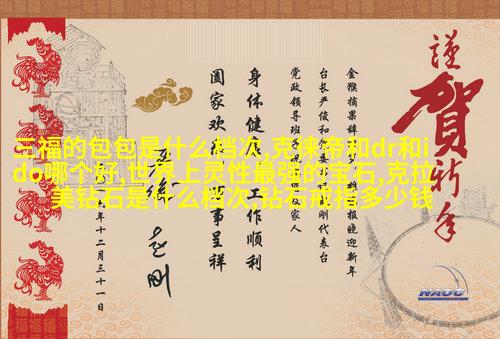 謹
賀
新年
金猴摘果辞
报晓迎新年
台长严俊和
刚代表台
党政领导班
家人
身体健康
工作顺利
阖家欢
事呈祥
年十二月三十一日
三福的包包是什么档次,克徕帝和dr和i
do哪个好,世界上灵性最强的宝石,克拉
美钻石是什么档次,钻石戒指多少钱
NAOC